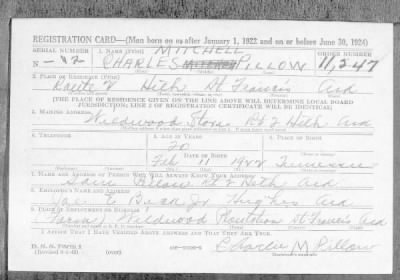 REGISTRATION CARD—(Men born on or after January 1, 1922 and on or before June 30, 1924)
SERIAL NUMBER 1. NAME (Print) ORDER NUMBER
MITCHELL
N-42 CHARLES MITCHELL PILLOW 11,247
2. PLACE OF RESIDENCE (Print)
Route 2 Hith, St. Francis Ark
[THE PLACE OF RESIDENCE GIVEN ON THE LINE ABOVE WILL DETERMINE LOCAL BOARD
JURISDICTION; LINE 2 OF REGISTRATION CERTIFICATE WILL BE IDENTICAL]
3. MAILING ADDRESS
Wildwood Store Rt 2 Hith Ark
4. TELEPHONE 5. AGE IN YEARS
20
Feb 11 1922
7. NAME AND ADDRESS OF PERSON WHO WILL ALWAYS KNOW YOUR ADDRESS
Pillow Rt 2 Hith Ark
8. EMPLOYER'S NAME AND ADDRESS
E Beck Jr Hughes Ark
9. PLACE OF EMPLOYMENT OR BUSINESS
Farm Wildwood Plantation St Francis Ark
I AFFIRM THAT I HAVE VERIFIED ABOVE ANSWERS AND THAT THEY ARE TRUE.
D. S. S. Form 1 (over)
Charlie M Pillow